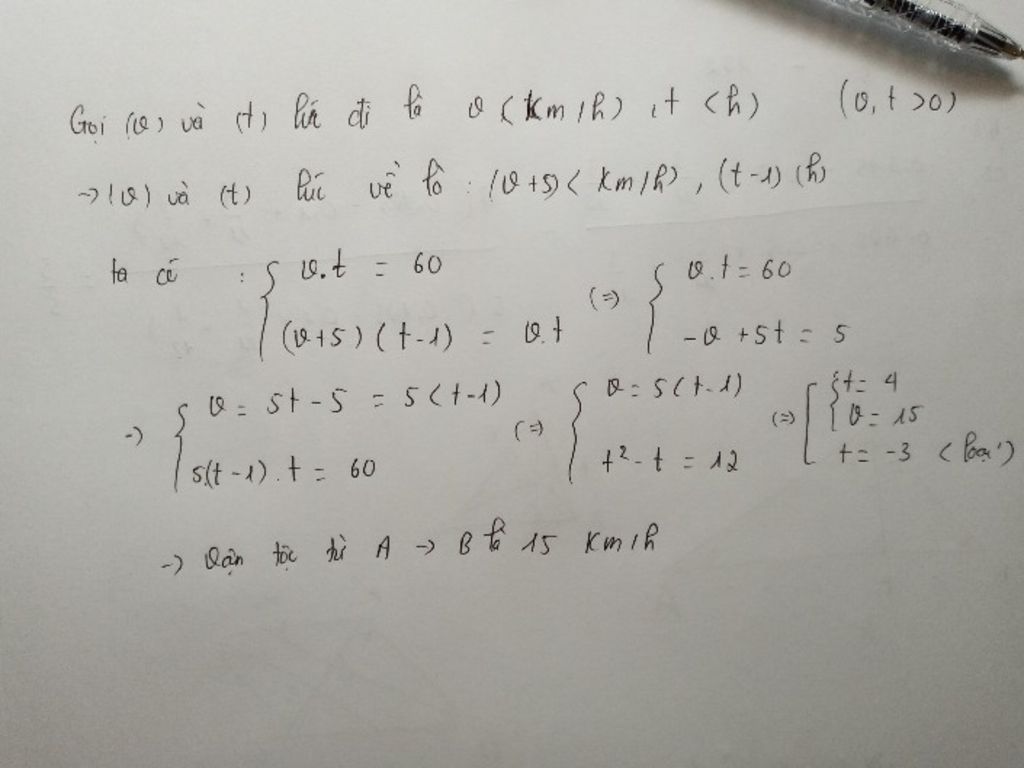 Gọi (v) và (t) lúc đi là v (km/h), t (h) (v, t >0)
→ (v) và (t) lúc về là : (v+5) (km/h), (t-1) (h)
ta có : { v.t = 60 (=) { v.t = 60
(v+5)(t-1) = v.t -v + 5t = 5
→ { v = 5t-5 = 5(t-1) (=) { v = 5(t-1) (=) [ { t = 4
v = 15
5(t-1).t = 60 t² - t = 12 t = -3 (loại)
→ vận tộc từ A → B là 15 km/h